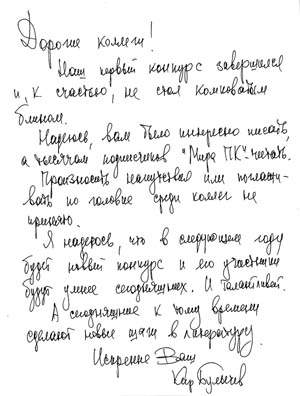 Дорогие коллеги!
Наш первый конкурс завершился
и, к счастью, не стал комковатым
блином.
Надеюсь, вам было интересно писать,
а тысячам подписчиков "Мира ПК" - читать.
Произносить напутствия или поглажи-
вать по головке среди коллег не
принято.
Я надеюсь, что в следующем году
будет новый конкурс и его участники
будут умнее сегодняшних. И талантливей.
А сегодняшние к тому времени
сделают новые шаги в литературу.
Искренне Ваш
Кир Булычев